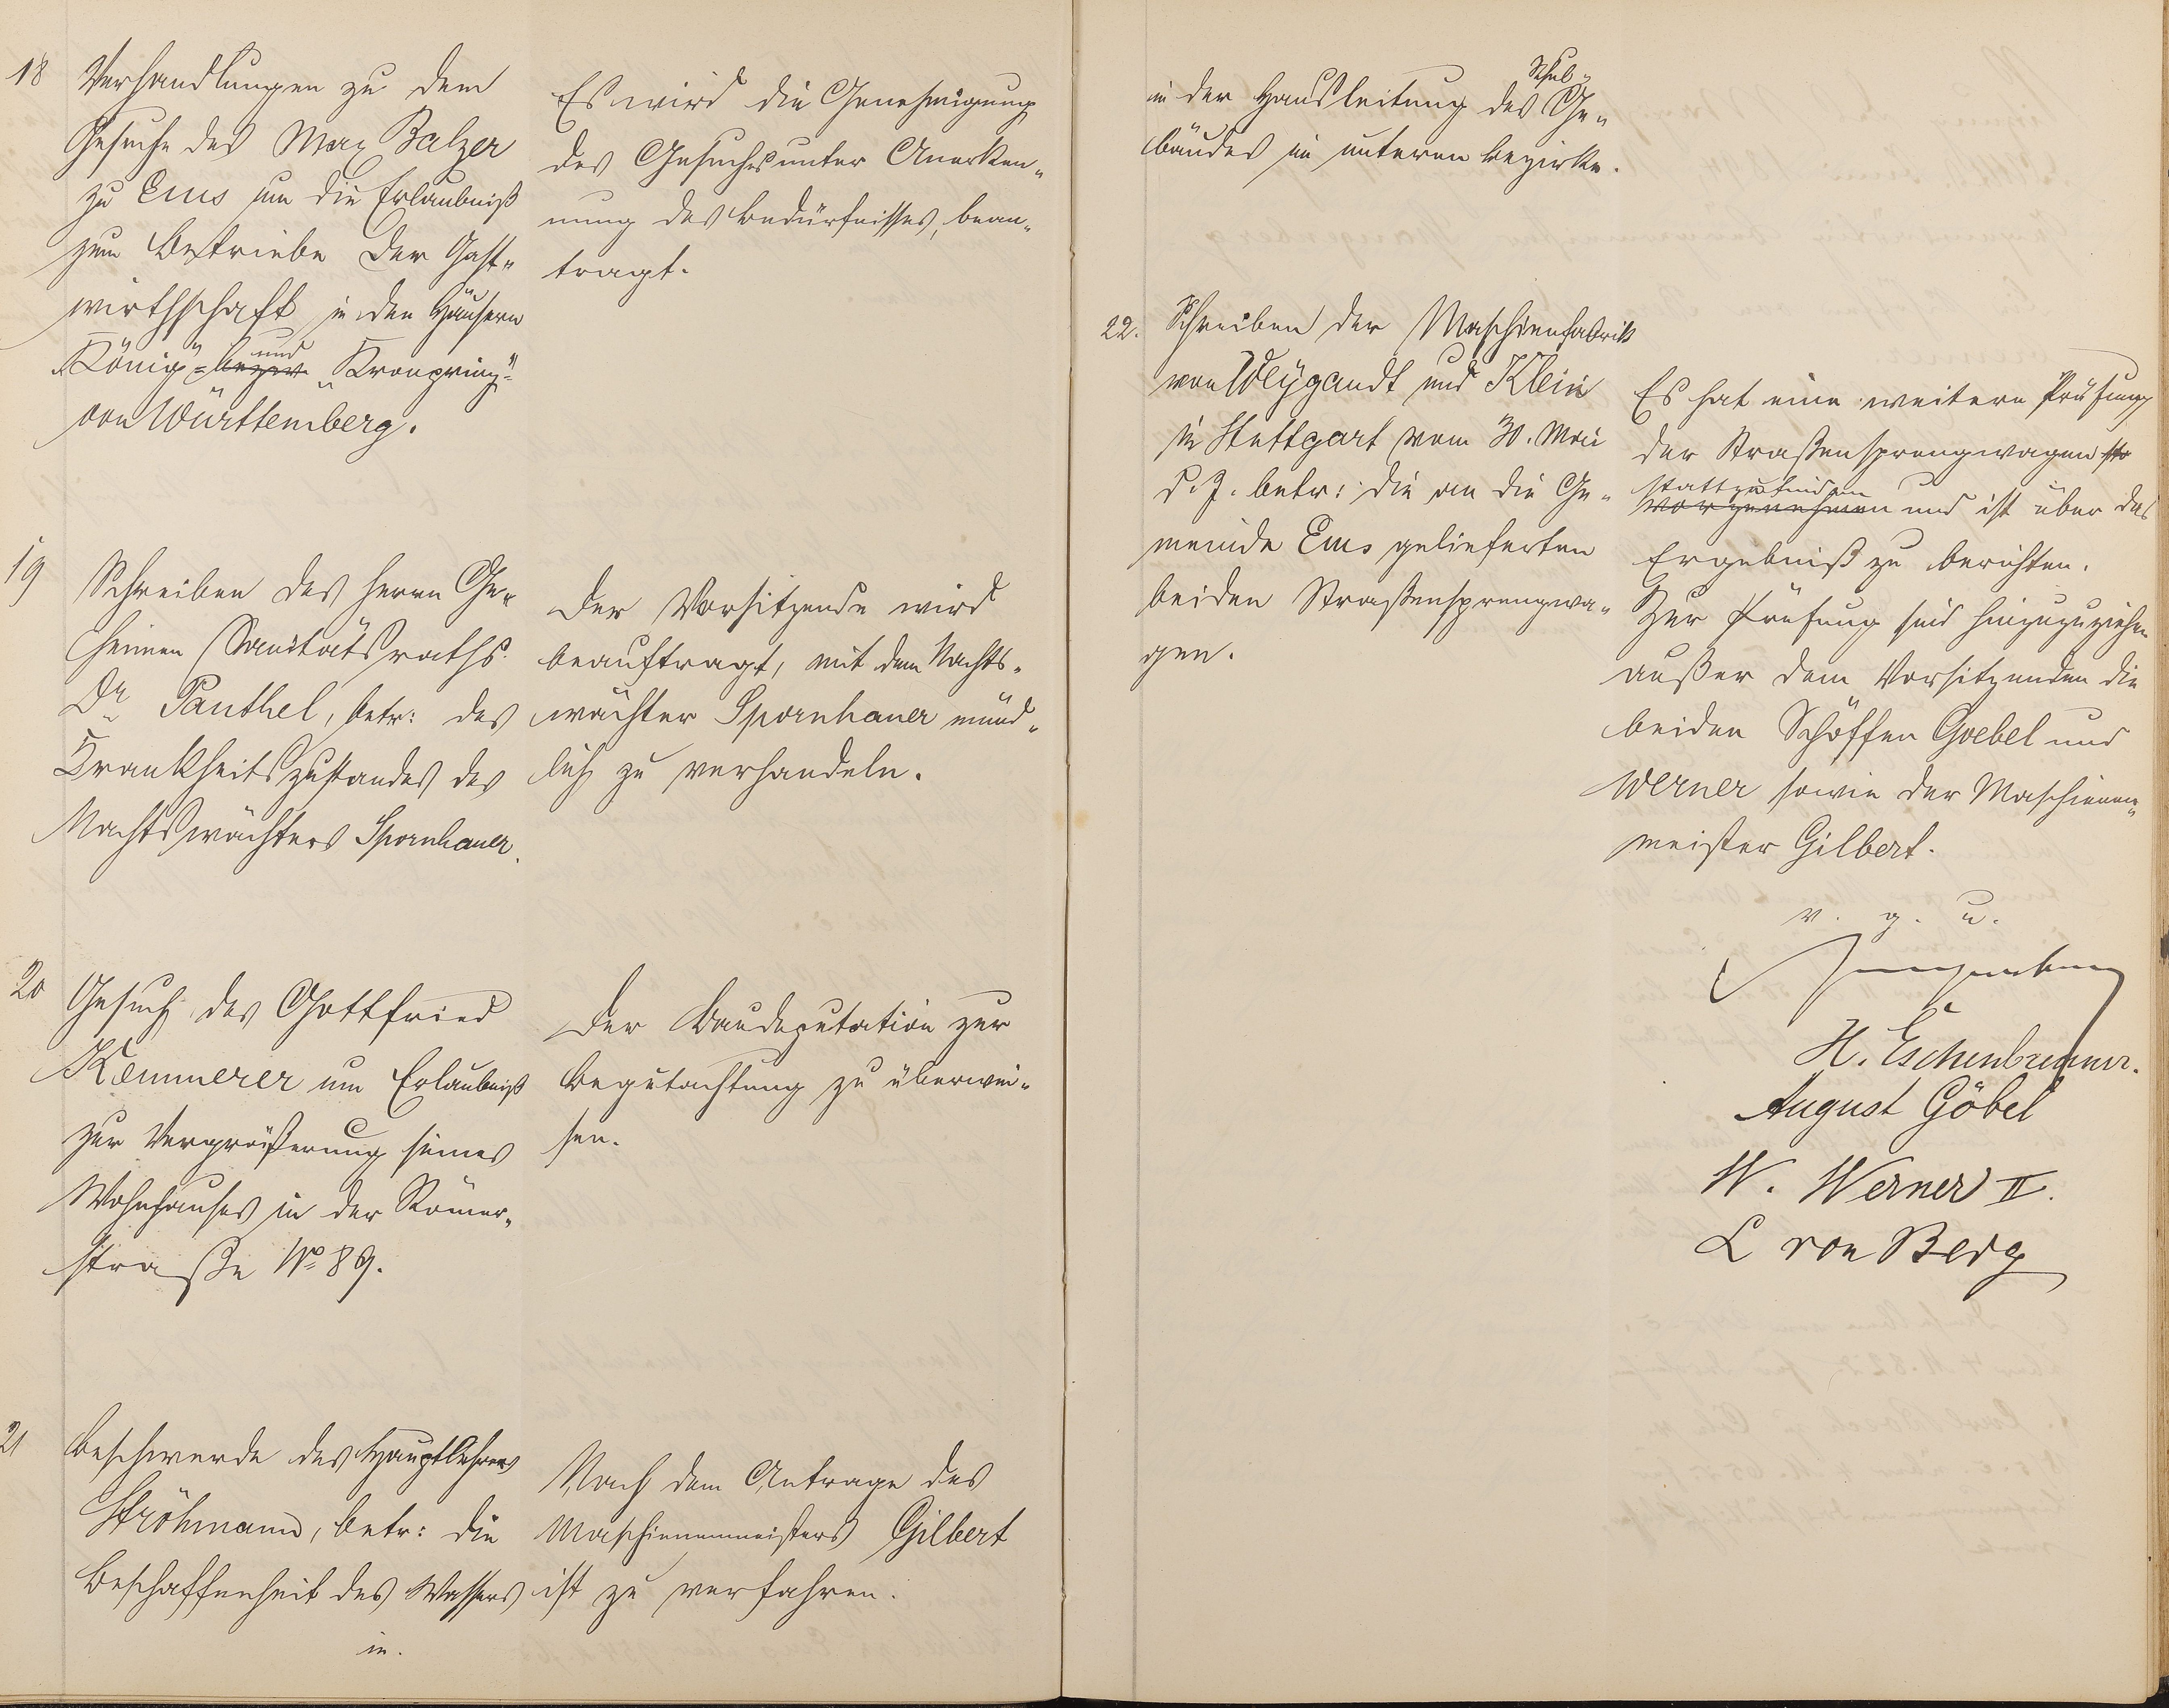 18
Verhandlungen zu dem
Gesuche des Max Balzer
zu Ems um die Erlaubniß
zum Betriebe der Gast-
wirthschaft in den Häusern
und
„König“- bezw. „Kronprinz“-
von Württemberg.
Es wird die Genehmigung
des Gesuches unter Anerken-
nung des Bedürfnisses, bean-
tragt.
19
Schreiben des Herrn Ge-
heimen Sanitätsraths
Dr Panthel, betr: des
Krankheitszustandes des
Nachtswächters Spornhauer.
Der Vorsitzende wird
beauftragt, mit dem Nachts-
wächter Spornhauer münd-
lich zu verhandeln.
20
Gesuch des Gottfried
Kemmerer um Erlaubniß
zur Vergrößerung seines
Wohnhauses in der Römer-
straße No 89.
Der Baudeputation zur
Begutachtung zu überwei-
sen.
21
Beschwerde des Hauptlehrers
Ströhmann, betr: die
Beschaffenheit des Wassers
in.
Nach dem Antrage des
Maschienenmeisters Gilbert
ist zu verfahren.
Schul-
in der Hausleitung des Ge-
bäudes im unteren Bezirke.
22.
Schreiben der Maschienfabrik
von Weygandt und Klein
in Stuttgart vom 30. Mai
d. J. betr: die an die Ge-
meinde Ems gelieferten
beiden Straßensprengwa-
gen.
Es hat eine weitere Prüfung
der Straßensprengwagen
stattzufinden
vorzunehmen und ist über das
Ergebniß zu berichten.
Zur Prüfung sind hinzuzuziehen
außer dem Vorsitzenden die
beiden Schöffen Goebel und
Werner sowie der Maschienen-
meister Gilbert.
v. g. u.
H. Eschenbrenner.
August Göbel
W. Werner II.
L von Berg